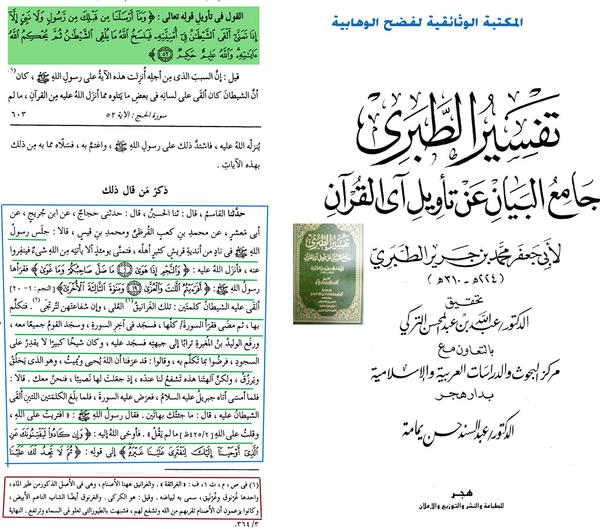 المكتبة الوثائقية لفضح الوهابية
تفسير الطبري
جامع البيان عن تأويل آى القرآن
لأبى جعفر محمد بن جرير الطبرى
(٢٢٤هـ - ٣١٠هـ)
تحقيق
الدكتور عبد الله بن عبد المحسن التركي
بالتعاون مع
مركز البحوث والدراسات العربية والإسلامية
بدار هجر
الدكتور عبد السند حسن يمامة
هجر
للطباعة والنشر والتوزيع والإعلان
القول فى تأويلِ قولِه تعالى: ﴿ وَمَا أَرْسَلْنَا مِن قَبْلِكَ مِن رَّسُولٍ وَلَا نَبِيٍّ إِلَّا
إِذَا تَمَنَّىٰ أَلْقَى ٱلشَّيْطَٰنُ فِىٓ أُمْنِيَّتِهِۦ فَيَنسَخُ ٱللَّهُ مَا يُلْقِى ٱلشَّيْطَٰنُ ثُمَّ يُحْكِمُ ٱللَّهُ
ءَايَٰتِهِۦ وَٱللَّهُ عَلِيمٌ حَكِيمٌ ﴿٥٢﴾ ﴾
قيل: إنَّ السببَ الذى مِن أجلِه أُنزِلت هذه الآيةُ على رسولِ اللهِ ﷺ، كان (١)
أنَّ الشيطانَ كان ألقَى على لسانِه فى بعضِ ما يَتلوه مما أنزَل اللهُ عليه مِن القرآنِ، ما لم
سورة الحج: الآية ٥٢
٦٠٣
يُنزِلْه اللهُ عليه، فاشتدَّ ذلك على رسولِ اللهِ ﷺ، واغتَمَّ به، فسلَّاه مما به مِن ذلك
بهذه الآياتِ.
ذكرُ مَن قال ذلك
حدَّثنا القاسمُ، قال: ثنا الحسينُ، قال: حدثنى حجاجٌ، عن ابنِ جُريجٍ، عن
أبى مَعشرٍ، عن محمدِ بنِ كعبٍ القُرظيِّ ومحمدِ بنِ قيسٍ، قالا: جلَس رسولُ
اللهِ ﷺ فى نادٍ من أنديةِ قريشٍ كثيرٍ أهلُه، فتمنَّى يومئذٍ ألا يأتيَه مِن اللهِ شىءٌ فينفِروا
عنه، فأنزَل اللهُ عليه: ﴿ وَٱلنَّجْمِ إِذَا هَوَىٰ ﴿١﴾ مَا ضَلَّ صَاحِبُكُمْ وَمَا غَوَىٰ ﴾ فقرَأها
رسولُ اللهِ ﷺ، حتى إذا بلَغ: ﴿ أَفَرَءَيْتُمُ ٱللَّٰتَ وَٱلْعُزَّىٰ ﴿١٩﴾ وَمَنَوٰةَ ٱلثَّالِثَةَ ٱلْأُخْرَىٰٓ ﴾ [النجم: ١ - ٢٠]
ألقَى عليه الشيطانُ كلمتَين: تلك الغَرانيقُ (١) العُلى، وإن شفاعتَهن لتُرتجَى. فتكلَّم
بها، ثم مضَى فقرَأ السورةَ كلَّها، فسجَد فى آخرِ السورةِ، وسجَد القومُ جميعًا معه،
ورفَع الوليدُ بنُ المغيرةِ ترابًا إلى جبهتِه فسجَد عليه، وكان شيخًا كبيرًا لا يقدِرُ على
السجودِ، فرضُوا بما تكلَّم به، وقالوا: قد عرَفنا أن اللهَ يُحيى ويُميتُ، وهو الذى يَخلُقُ
ويَرزُقُ، ولكنَّ آلهتَنا هذه تشفعُ لنا عندَه، إذ جعَلتَ لها نصيبًا، فنحنُ معك. قالا:
فلما أمسَى أتاه جبريلُ عليه السلامُ، فعرَض عليه السورةَ، فلما بلَغ الكلمتَين اللتين ألقَى
الشيطانُ عليه، قال: ما جئتُك بهاتَين. فقال رسولُ اللهِ ﷺ: « افتريتُ على اللهِ،
وقلتُ على اللهِ [٤٢٥/٢ظ] ما لم يَقُلْ ». فأوحَى اللهُ إليه: ﴿ وَإِن كَادُوا۟ لَيَفْتِنُونَكَ عَنِ
ٱلَّذِىٓ أَوْحَيْنَآ إِلَيْكَ لِتَفْتَرِىَ عَلَيْنَا غَيْرَهُۥ ﴾ إلى قولِه: ﴿ ثُمَّ لَا تَجِدُ لَكَ عَلَيْنَا
(١) فى ص، م، ت١، ف: « الغرانقة ». والغرانيق ههنا الأصنام، وهى فى الأصل الذكور من طير الماء،
واحدها غُرنوق وغُرنَيق، سمى به لبياضه. وقيل: هو الكركى. والغرنوق أيضًا الشاب الناعم الأبيض،
وكانوا يزعمون أن الأصنام تقربهم من الله وتشفع لهم، فشبهت بالطيور التى تعلو فى السماء وترتفع. النهاية
٣/ ٣٦٤.